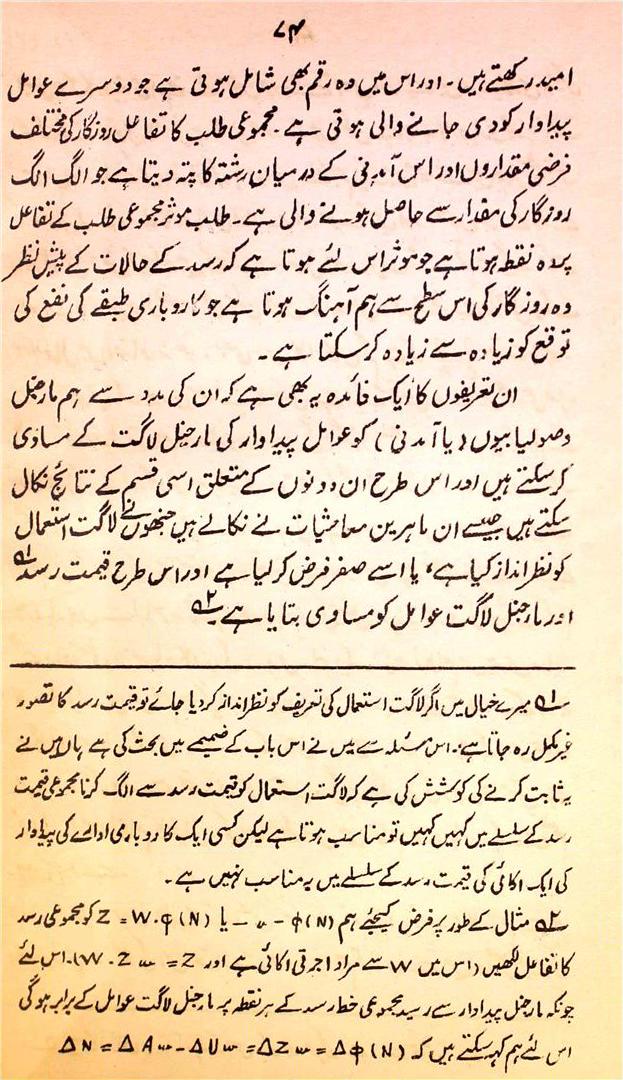 ۷۴
امید رکھتے ہیں۔ اور اس میں وہ رقم بھی شامل ہوتی ہے جو دوسرے عوامل
پیداوار کو دی جانے والی ہوتی ہے۔ مجموعی طلب کا تفاعل روزگار کی مختلف
فرضی مقداروں اور اس آمدنی کے درمیان رشتہ کا پتہ دیتا ہے جو الگ الگ
روزگار کی مقدار سے حاصل ہونے والی ہے۔ طلب موثر مجموعی طلب کے تفاعل
پر وہ نقطہ ہوتا ہے جو موثر اس لئے ہوتا ہے کہ رسد کے حالات کے پیش نظر
وہ روزگار کی اس سطح سے ہم آہنگ ہوتا ہے جو کاروباری طبقے کی نفع کی
توقع کو زیادہ سے زیادہ کرسکتا ہے۔
ان تعریفوں کا ایک فائدہ یہ بھی ہے کہ ان کی مدد سے ہم مارجنل
وصولیابیوں (یا آمدنی) کو عوامل پیداوار کی مارجنل لاگت کے مساوی
کرسکتے ہیں اور اس طرح ان دونوں کے متعلق اسی قسم کے نتائج نکال
سکتے ہیں جیسے ان ماہرین معاشیات نے نکالے ہیں جنھوں نے لاگت استعمال
کو نظر انداز کیا ہے، یا اسے صفر فرض کرلیا ہے اور اس طرح قیمت رسد ۱؎
اور مارجنل لاگت عوامل کو مساوی بتایا ہے ۲؎
۱؎ میرے خیال میں اگر لاگت استعمال کی تعریف کو نظر انداز کردیا جائے تو قیمت رسد کا تصور
غیر مکمل رہ جاتا ہے۔ اس مسئلہ سے میں نے اس باب کے ضمیمے میں بحث کی ہے جہاں میں نے
یہ ثابت کرنے کی کوشش کی ہے کہ لاگت استعمال کو قیمت رسد سے الگ کرنا مجموعی قیمت
رسد کے سلسلے میں کہیں کہیں تو مناسب ہوتا ہے لیکن کسی ایک کاروباری ادارے کی پیداوار
کی ایک اکائی کی قیمت رسد کے سلسلے میں یہ مناسب نہیں ہے۔
۲؎ مثال کے طور پر فرض کیجئے ہم Z = W·φ(N) یا φ(N) کو مجموعی رسد
کا تفاعل لکھیں (اس میں W سے مراد اجرتی اکائی ہے اور W·Z س = Z)۔ اس لئے
چونکہ مارجنل پیداوار سے رسید مجموعی خط رسد کے ہر نقطہ پر مارجنل لاگت عوامل کے برابر ہوگی
اس لئے ہم کہہ سکتے ہیں کہ ΔN = ΔA س - ΔU س = ΔZ س = Δφ(N)